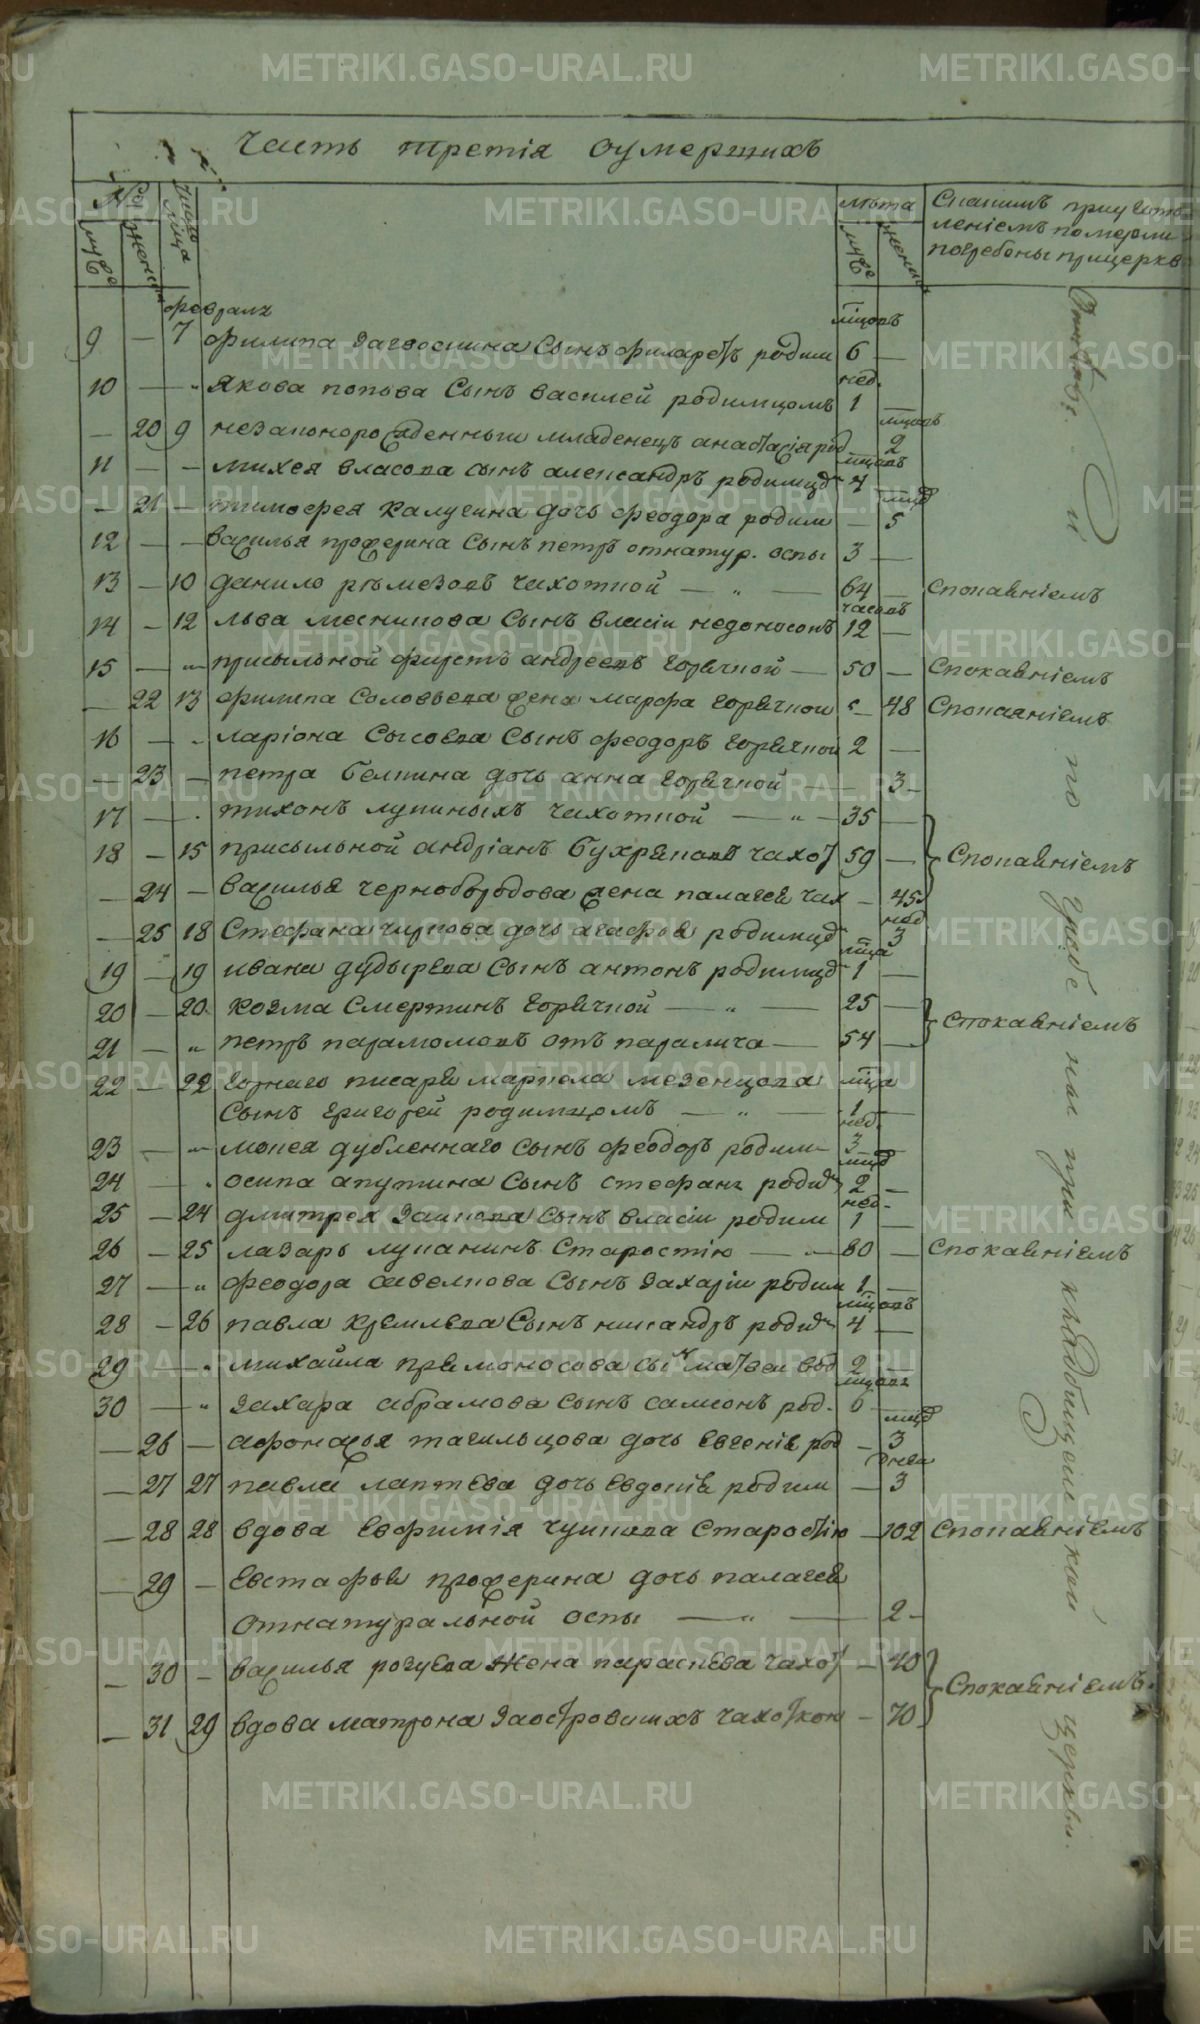 Часть третія оумершихъ
№ Число мѣсца
муже женск
лѣта
муже женск
Спапимъ приуготов
леніемъ померли
погребены прицеркв
февраля
мцовъ
9 — 7 филипа Загвоскина Сынъ филаретъ родим 6 —
нед.
10 — „ Якова попова Сынъ василей родимцомъ 1 —
мцовъ
— 20 9 незаконорожденный младенецъ анастасія род 2
мцовъ
11 — — михея власова сынъ александръ родимцо 4
мцо
— 21 — тимофея Калугина дочь феодора родим — 5
12 — — василья прожерина Сынъ петръ отнатур. оспы 3 —
13 — 10 данило ремезовъ чахоткой — „ — 64 — Спокаяніемъ
часовъ
14 — 12 льва меснипова Сынъ власіи недоносокъ 12 —
15 — „ присыльной фирстъ андреевъ горячкой — 50 — Спокаяніемъ
— 22 13 филипа Соловьева жена марфа горячкой — 48 Спокаяніемъ
16 — „ ларіона Сысоева Сынъ феодоръ горячкой 2 —
— 23 — петра белкина дочь анна горячкой — 3 —
17 — „ тихонъ лупиныхъ чахоткой — „ — 35 —
18 — 15 присыльной андріанъ бухряковъ чахот 59 — Спокаяніемъ
— 24 — василья чернобородова жена палагея чах — 45
нед
— 25 18 Стефана чиркова дочь агафья родимцо 3
мца
19 — 19 ивана дудырева Сынъ антонъ родимцо 1 —
20 — 20 козма Смертинъ горячкой — „ — 25 —
Спокаяніемъ
21 — „ петръ парамоновъ отъ паралича — 54 —
22 — 22 горнаго писаря маркела мезенцова мца
Сынъ григорей родимцомъ — „ — 1 —
нед.
23 — „ мокея дубленнаго сынъ феодоръ родим 3 —
мцо
24 — „ осипа апутина Сынъ стефанъ роди 2 —
нед.
25 — 24 дмитрея Заикова Сынъ власіи родим 1 —
26 — 25 лазарь лупанинъ Старостію — „ 80 — Спокаяніемъ
27 — „ феодора савелкова Сынъ Захаріи родим 1 —
мцовъ
28 — 26 павла кремлева Сынъ никандръ роди 4 —
29 — „ михайла прямоносова сынъ матвеи вод 2 —
мцовъ
30 — „ Захара абрамова сынъ самсонъ род. 6
мцо
— 26 — афонасья тагильцова дочь Евгенія род — 3
дней
— 27 27 павла лаптева дочь евдокія родим — 3
— 28 28 вдова Евфимія чупкова Старостію — 102 Спокаяніемъ
— 29 — Евстафья прожерина дочь палагея
отнатуральной оспы — „ — 2 —
— 30 — василья рогуева жена парасковa чахот — 40
Спокаяніемъ.
— 31 29 вдова матрона Заостровскихъ чахоткой — 70